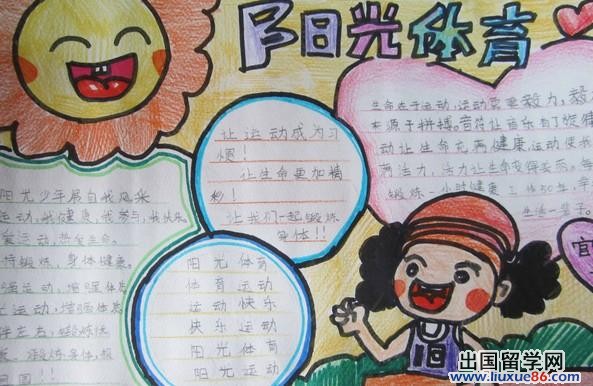 阳光体育
让运动成为习
惯!
让生命更加精
彩!
让我们一起锻炼
身体!!
生命在于运动,运动需要毅力,毅
来源于拼搏。音符让音乐有了旋律
动让生命充满健康,运动使我
满活力,活力让生命变得
锻炼一小时健康工作50年,幸
生活一辈子。
阳光少年展自我风采
运动,我健康,我参与,我快乐。
爱运动,热爱生命。
持锻炼,身体健康。
强运动,增强体质
运动,增强体
伴左右,锻炼快
锻炼身体,报
国!!
阳光体育
体育运动
运动快乐
快乐运动
阳光体育
阳光运动
宜
18
出国留学网
www.liuxue86.com